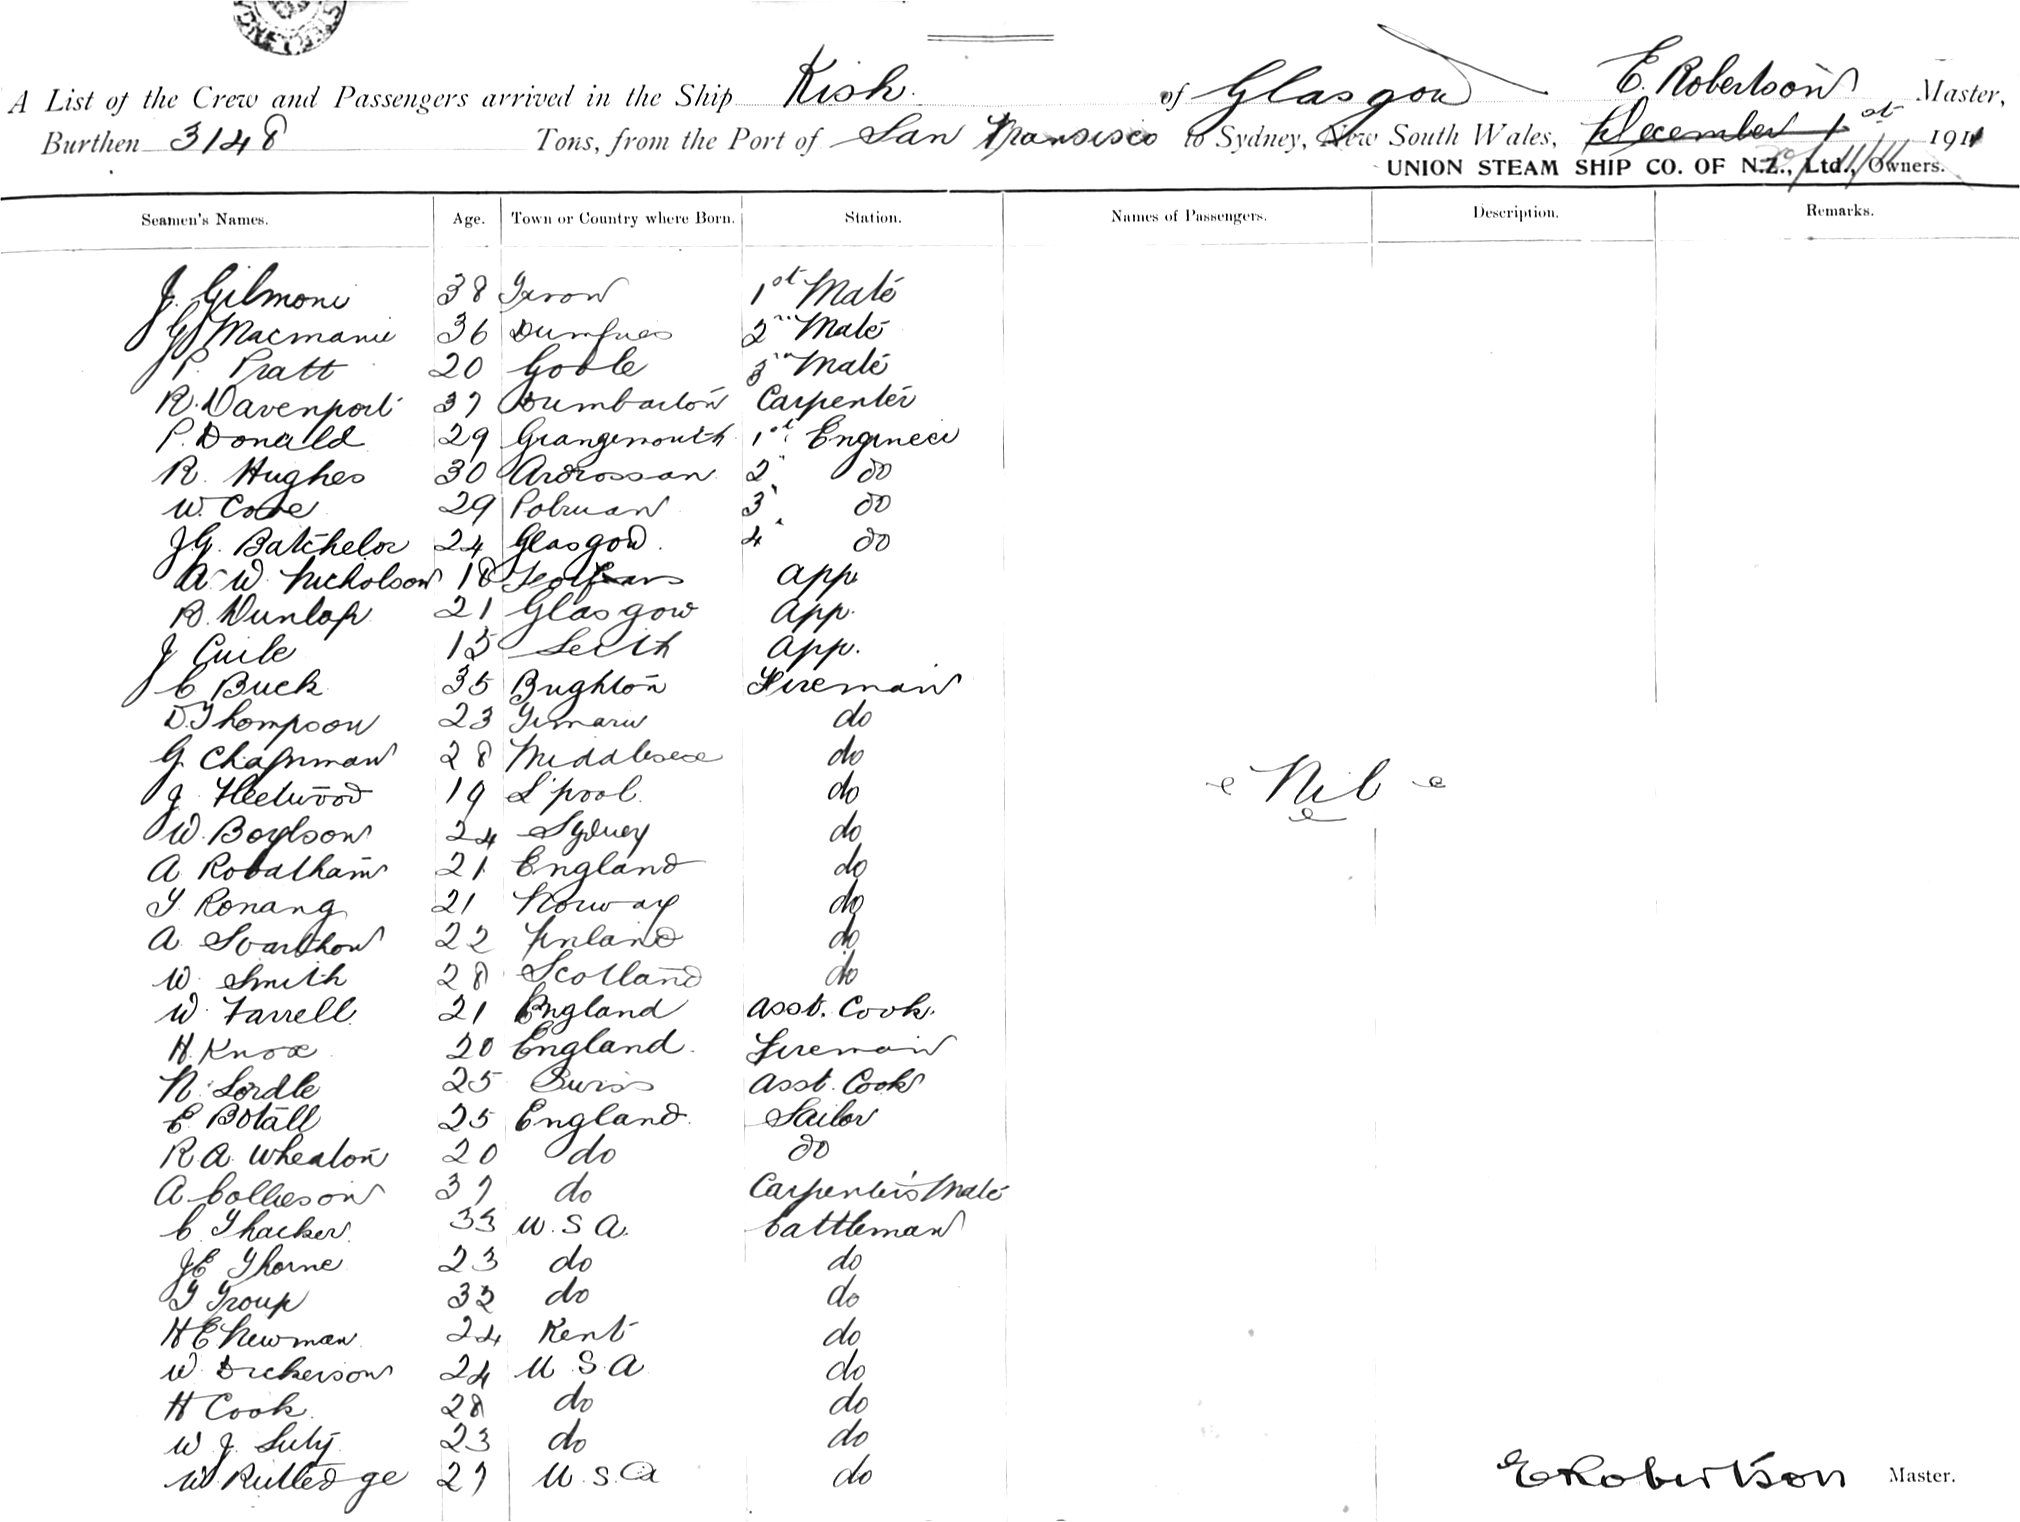 A List of the Crew and Passengers arrived in the Ship Kish. of Glasgow E. Robertson Master,
Burthen 3148 Tons, from the Port of San Fransisco to Sydney, New South Wales, December 1st 1911
UNION STEAM SHIP CO. OF N.Z., Ltd., Owners.
Seamen's Names. Age. Town or Country where Born. Station. Names of Passengers. Description. Remarks.
J. Gilmoni 38 1st Mate
G Macmanie 36 Dumfries 2nd Mate
P. Pratt 20 Goole 3rd Mate
R. Davenport 37 Dumbarton Carpenter
P. Donald 29 Grangemouth 1st Engineer
R. Hughes 30 Ardrossan 2" do
W. Cove 29 Polruan 3" do
J.G. Batchelor 24 Glasgow. 4" do
A. W. Nicholson 18 App
R. Dunlop 21 Glasgow App.
J 15 Leith App.
C Buck 35 Brighton Fireman
D. Thompson 23 Timaru do
G Chapman 28 Middlesex do
Nil
J. Fleetwood 19 L'pool. do
W. Boylson 24 Sydney do
A Robatham 21 England do
T. Ronang 21 Norway do
A 22 Finland do
W. Smith 28 Scotland do
W. Farrell. 21 England Asst. Cook.
H. Knox 20 England. Fireman
N. Lordle 25 Swiss Asst. Cook
E Botall 25 England. Sailor
R. A. Wheaton 20 do do
A Collieson 37 do Carpenter's Mate
C. Thacker. 33 U.S.A. Cattleman
J E Thorne 23 do do
T Troup 32 do do
H E Newman. 24 Kent do
W. Dickerson 24 U.S.A do
H Cook. 28 do do
W J. Suty 23 do do
W. Rutledge 27 U.S.A do
E Robertson Master.